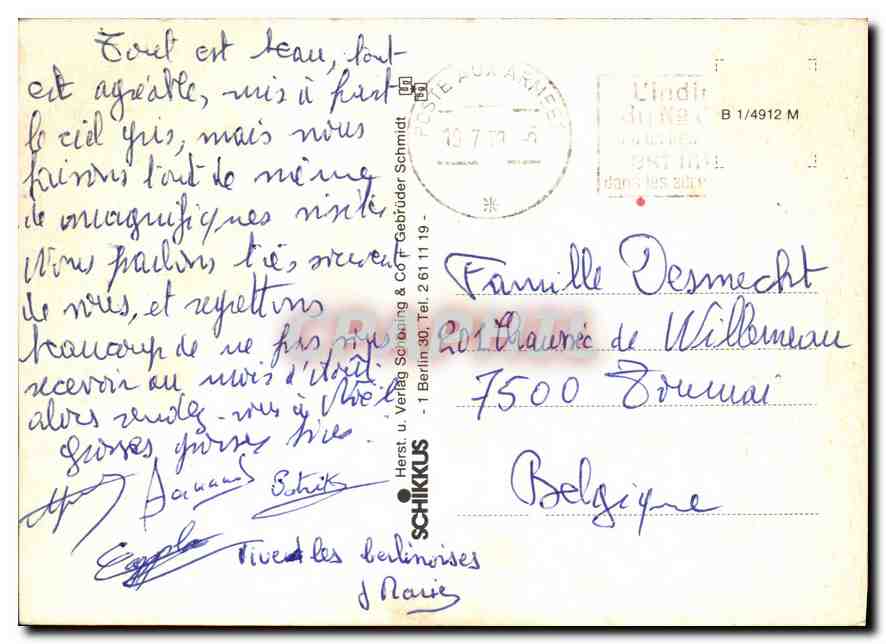 Tout est beau, tout
est agréable, mis à part
le ciel gris, mais nous
faisons tout de même
de magnifiques visites.
Nous parlons très souvent
de vous, et regrettons
beaucoup de ne pas vous
recevoir au mois d'Août
alors rendez-vous à Noël
grosses grosses bises.
Bernard Patrick
Vive les berlinoises
J Marie
SCHIKKUS
Herst. u. Verlag Schöning & Co + Gebrüder Schmidt
- 1 Berlin 30, Tel. 2 61 11 19 -
POSTE AUX ARMEES
L'indi
du No
dans les adre
B 1/4912 M
Famille Desmecht
201 Chaussée de Willemeau
7500 Tournai
Belgique